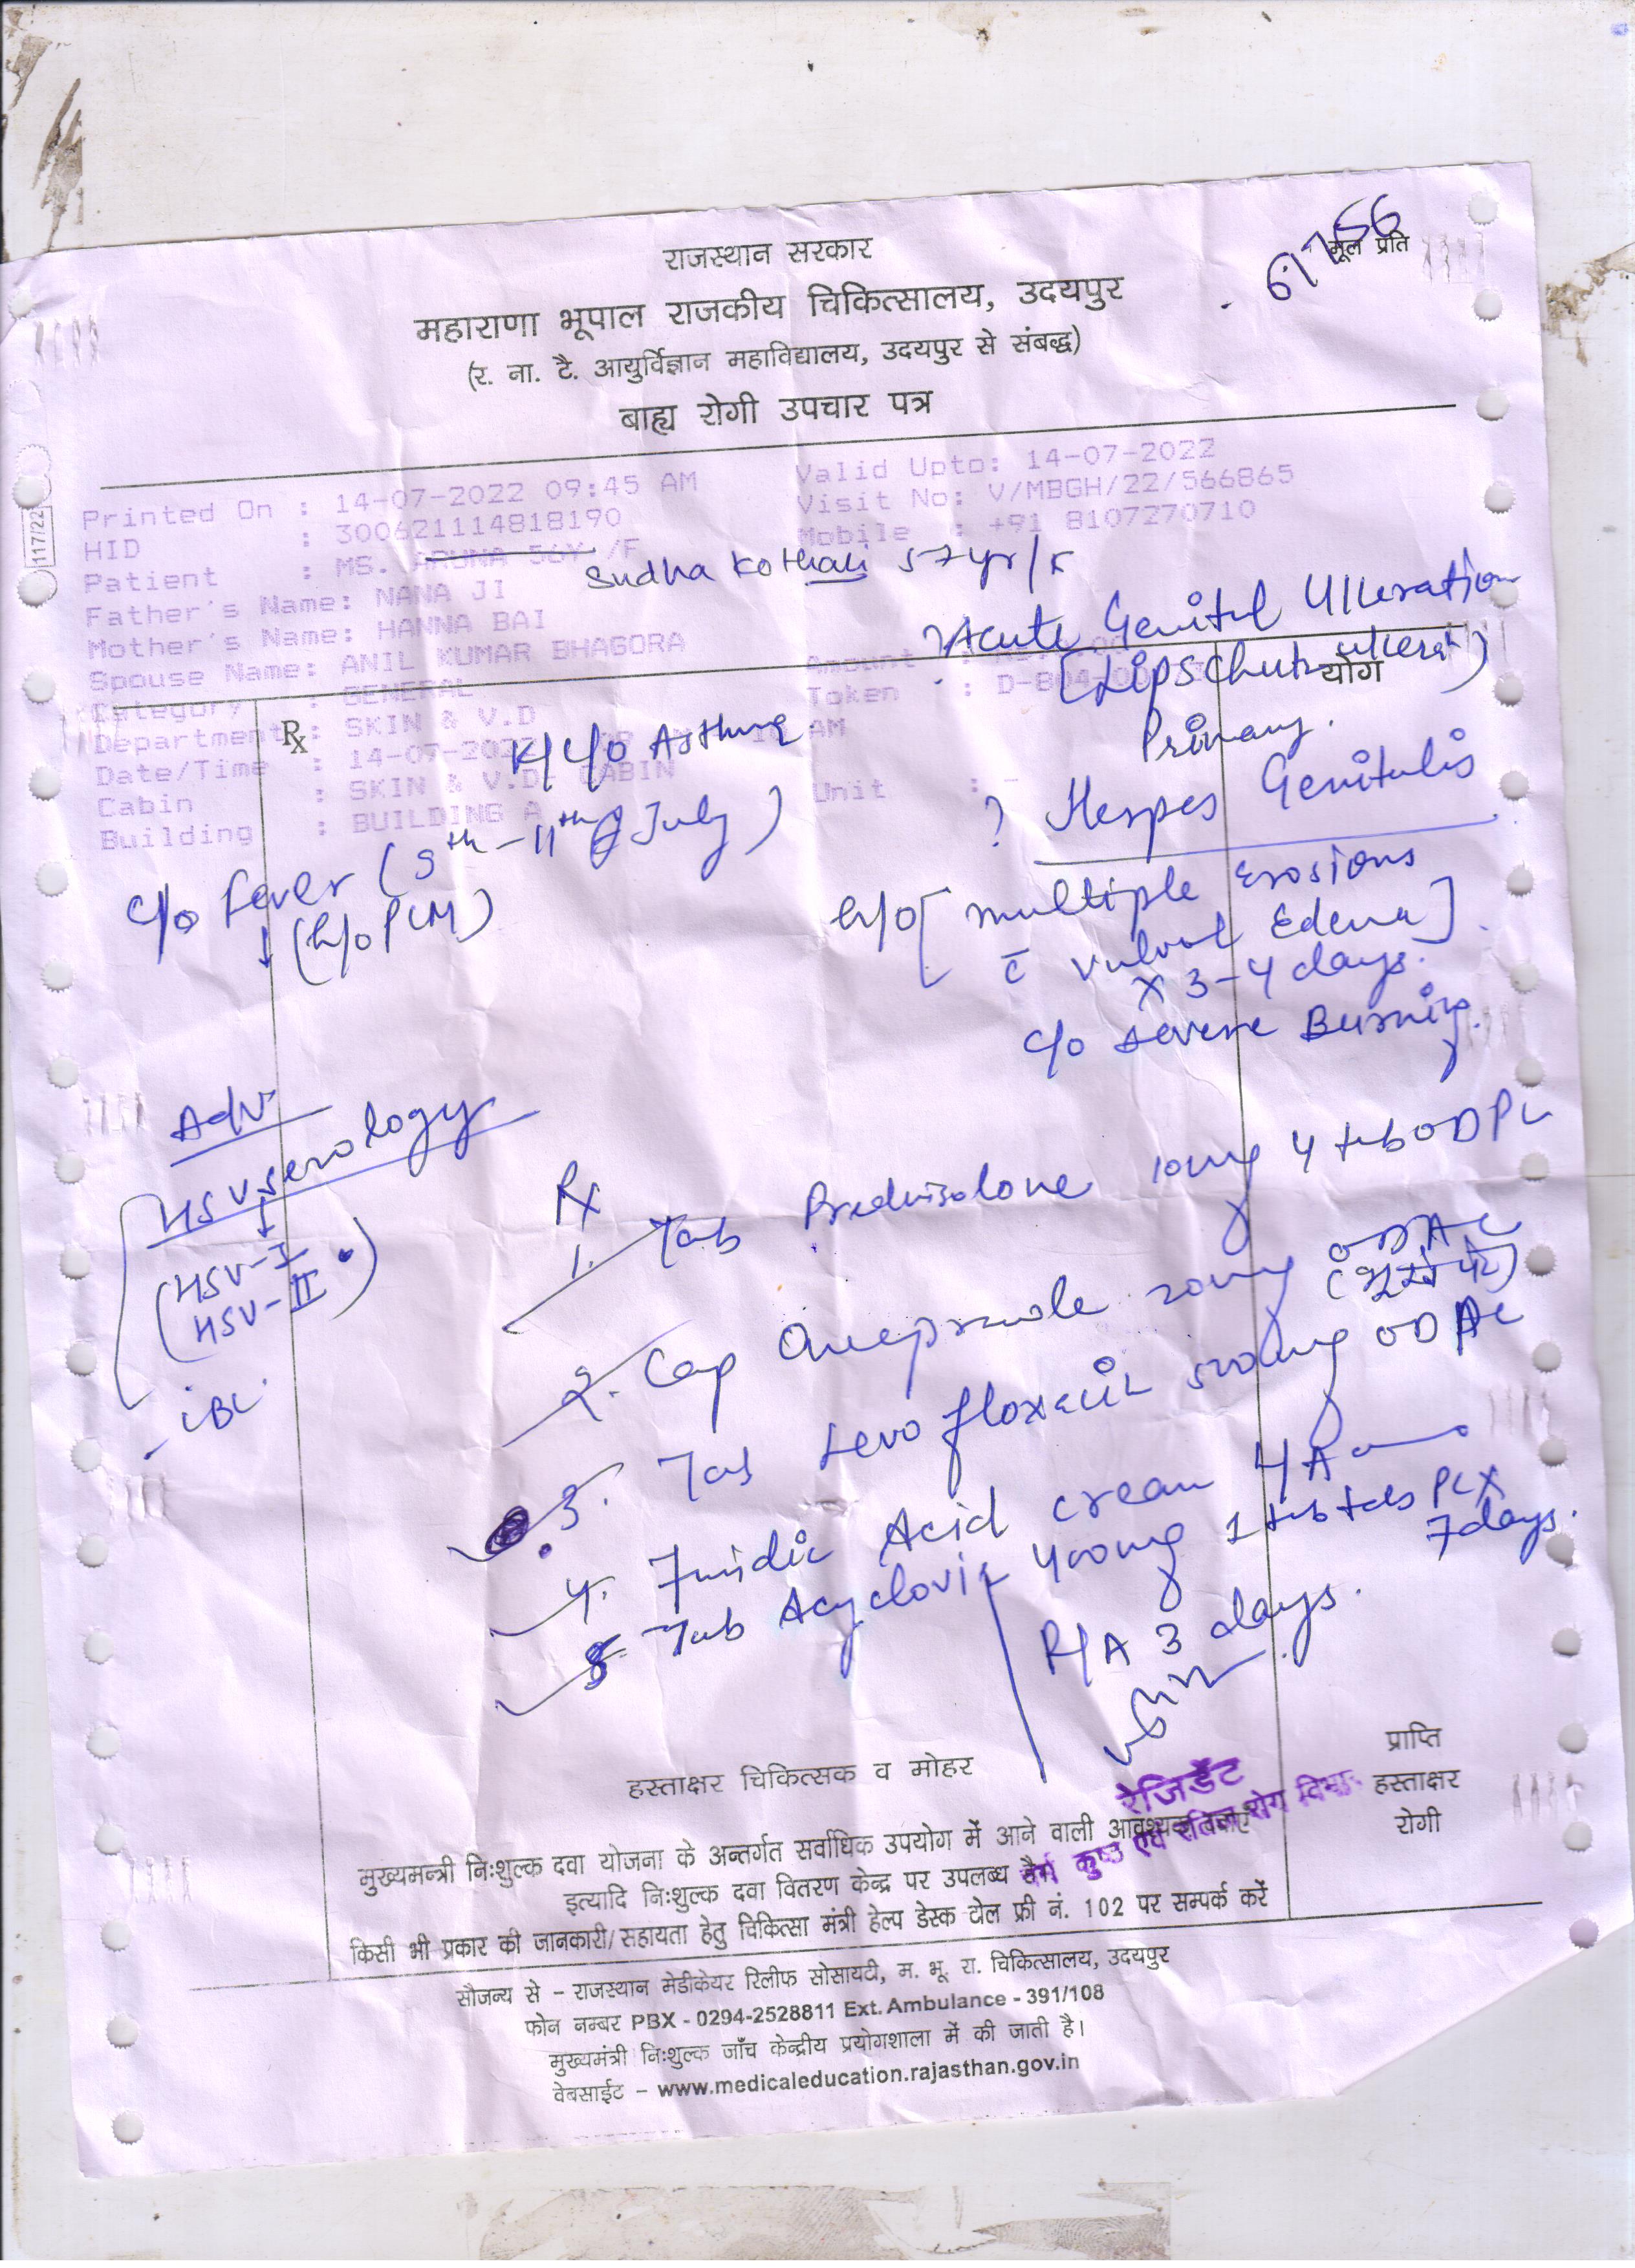 मूल प्रति
राजस्थान सरकार
महाराणा भूपाल राजकीय चिकित्सालय, उदयपुर
(र. ना. टै. आयुर्विज्ञान महाविद्यालय, उदयपुर से संबद्ध)
बाह्य रोगी उपचार पत्र
117/22
Printed On : 14-07-2022 09:45 AM Valid Upto: 14-07-2022
HID : 300621114818190 Visit No: V/MBGH/22/566865
Patient : MS. ARUNA 56Y /F Mobile : +91 8107270710
Sudha Kothari 57yr/F
Father's Name: NANA JI
Mother's Name: HANNA BAI
Spouse Name: ANIL KUMAR BHAGORA Amount :
Category : GENERAL Token : D-804-
Department : SKIN & V.D
Date/Time : 14-07-2022 AM
Cabin : SKIN & V.D. CABIN Unit : -
Building : BUILDING A
?Acute Genital Ulceration
(Lipschutz ulcer)
योग
Primary.
? Herpes Genitalis
Rx
K/C/O Asthma
C/o Fever (5th-11th July)
(h/o PCM)
h/o [multiple Erosions
c̄ vulval Edema]
x 3-4 days.
C/o severe Burning.
Adv
HSV serology
(HSV-I
HSV-II)
Rx
1. Tab Prednisolone 10mg 4 tab OD PC
2. Cap Omeprazole 20mg OD AC
(भूखे पेट)
3. Tab Levofloxacin 500mg OD AC
4. Fusidic Acid cream
5. Tab Acyclovir 400mg 1 tab tds PC x
7 days.
R/A 3 days.
हस्ताक्षर चिकित्सक व मोहर
रेजिडेंट
प्राप्ति
हस्ताक्षर
रोगी
मुख्यमन्त्री निःशुल्क दवा योजना के अन्तर्गत सर्वाधिक उपयोग में आने वाली आवश्यक दवाएं
इत्यादि निःशुल्क दवा वितरण केन्द्र पर उपलब्ध है।
किसी भी प्रकार की जानकारी/सहायता हेतु चिकित्सा मंत्री हेल्प डेस्क टोल फ्री नं. 102 पर सम्पर्क करें
सौजन्य से - राजस्थान मेडीकेयर रिलीफ सोसायटी, म. भू. रा. चिकित्सालय, उदयपुर
फोन नम्बर PBX - 0294-2528811 Ext. Ambulance - 391/108
मुख्यमंत्री निःशुल्क जाँच केन्द्रीय प्रयोगशाला में की जाती है।
वेबसाईट - www.medicaleducation.rajasthan.gov.in